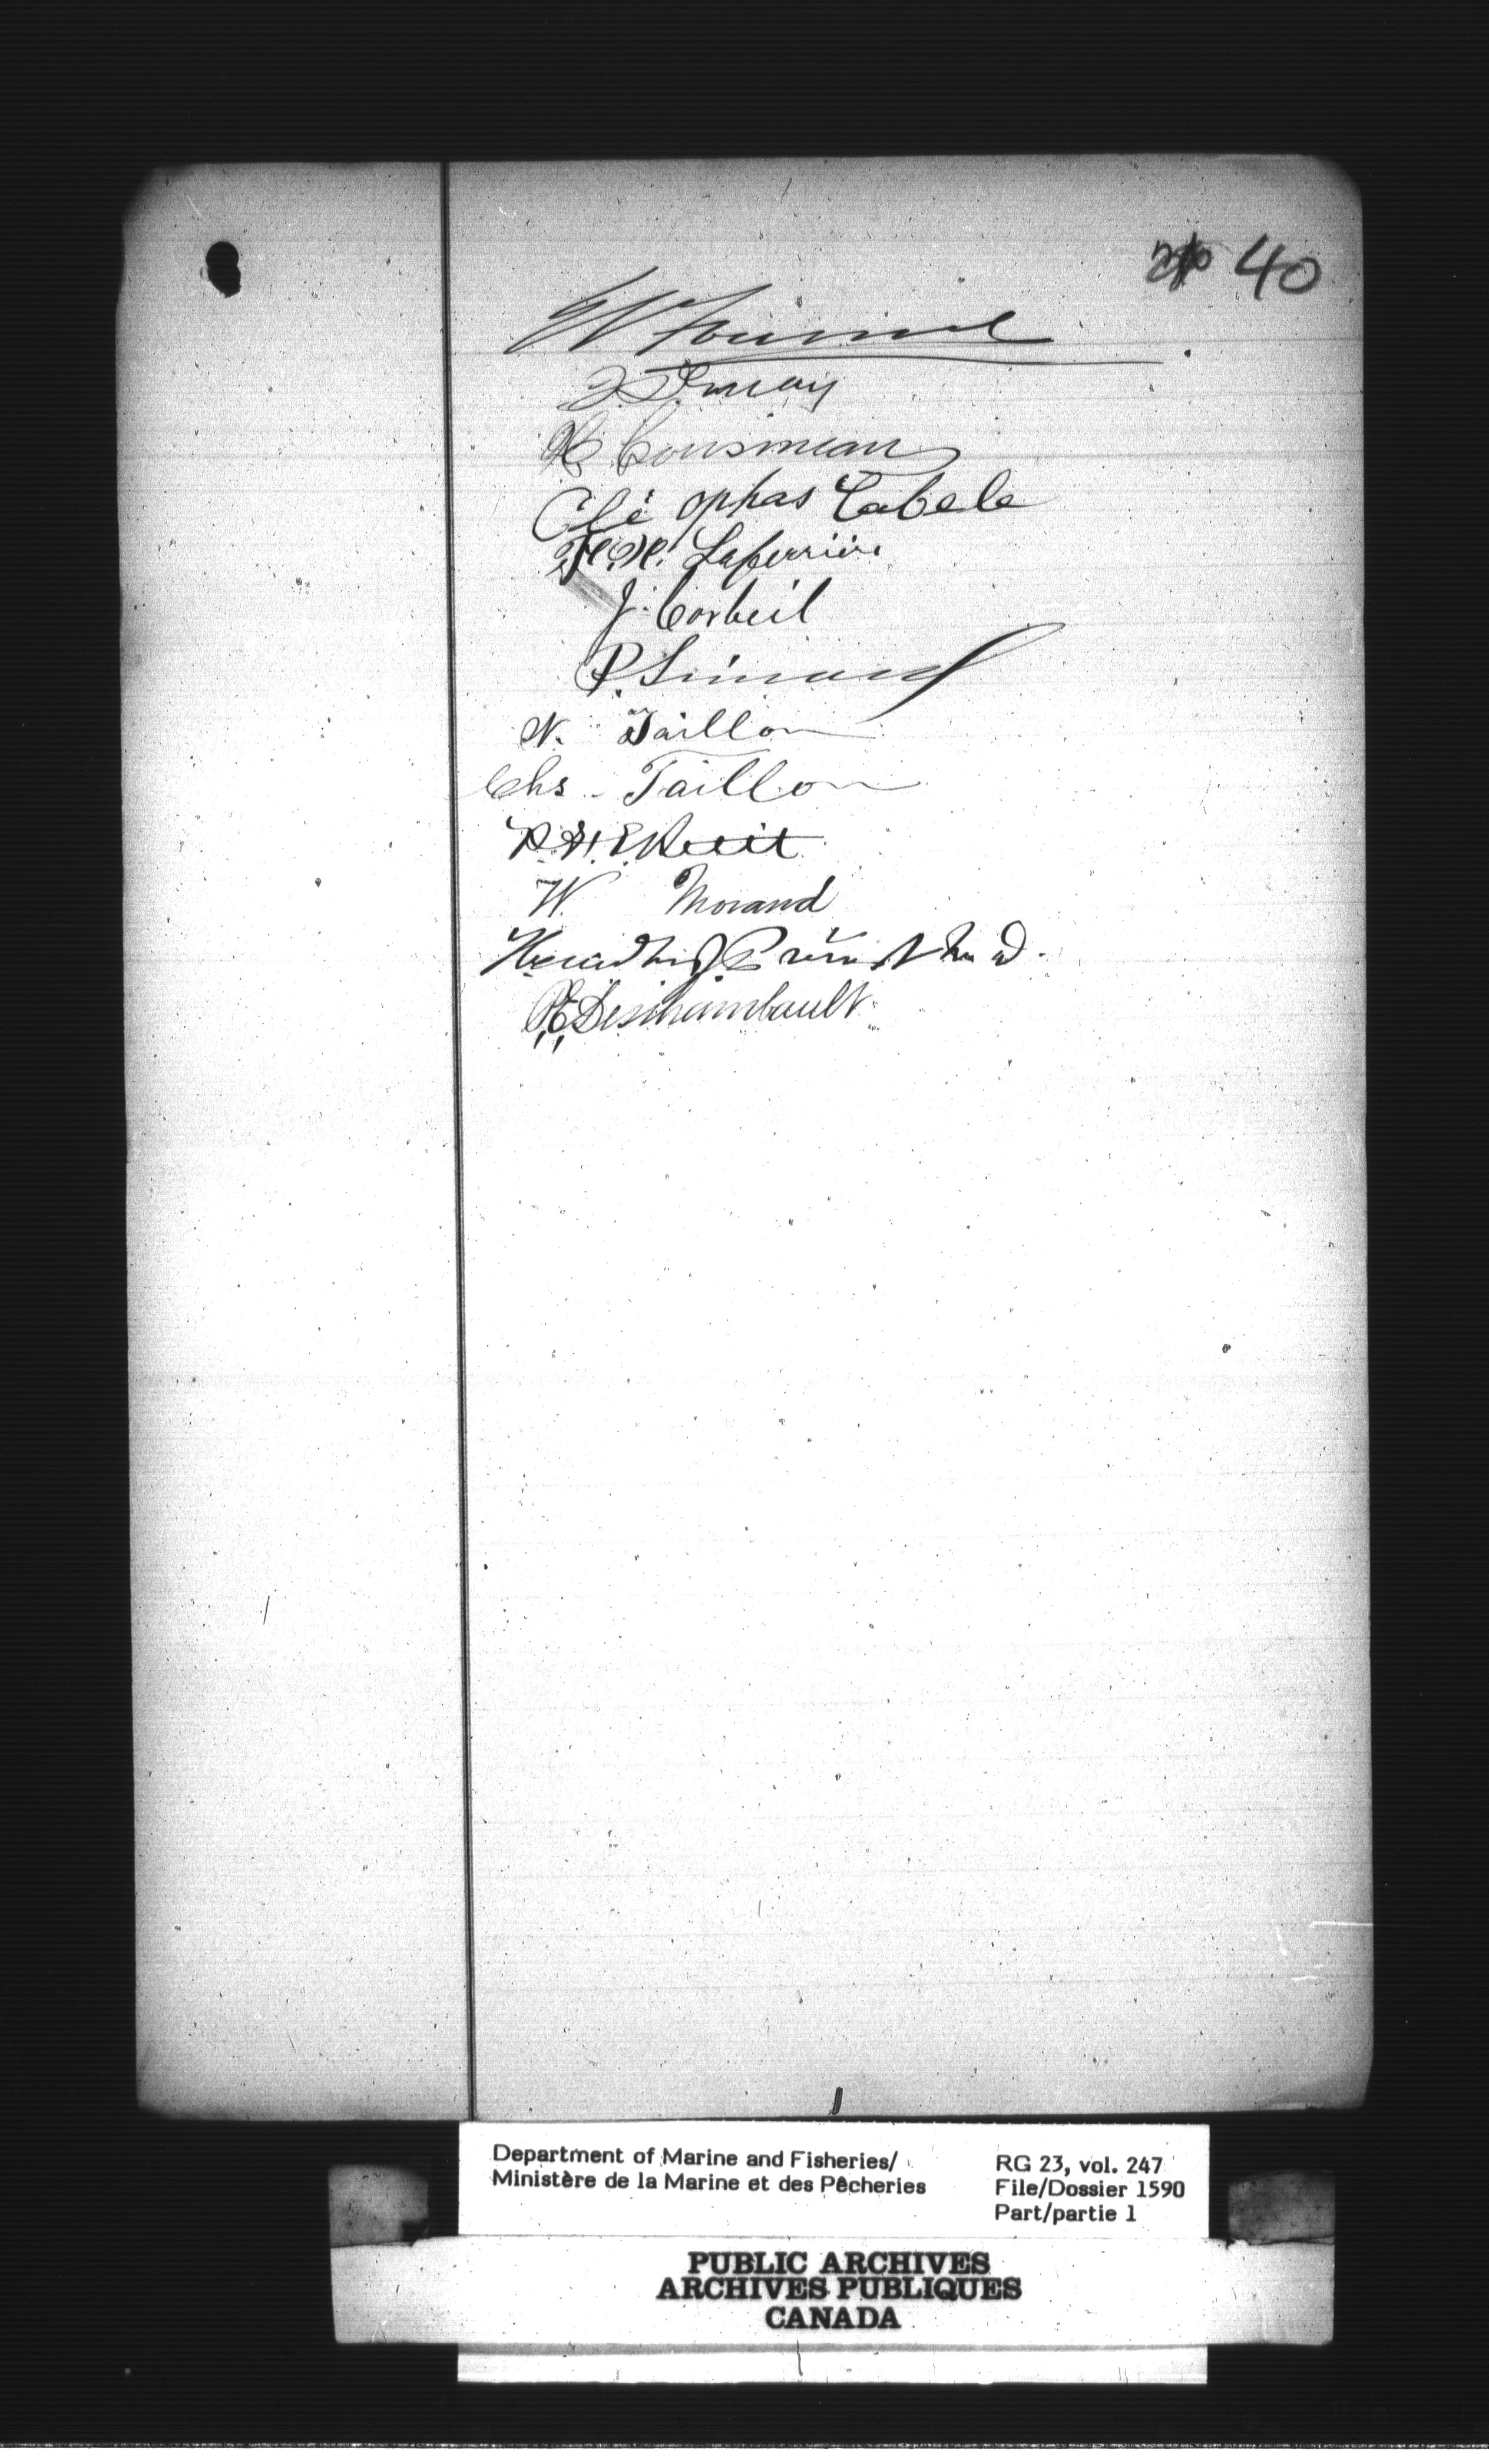 40
H Cousineau
Clé ophas Labele
Laferrière
J. Corbeil
P. Simard
N. Taillon
Chs - Taillon
W. Morand
P.E. Deschambault
Department of Marine and Fisheries/
Ministère de la Marine et des Pêcheries
RG 23, vol. 247
File/Dossier 1590
Part/partie 1
PUBLIC ARCHIVES
ARCHIVES PUBLIQUES
CANADA